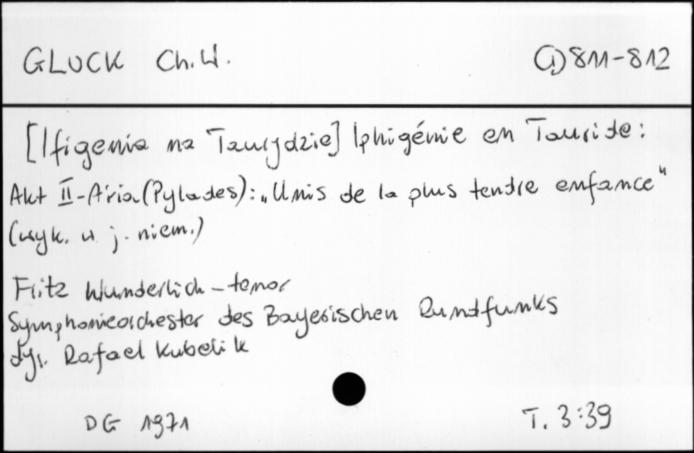 GLUCK Ch.W. CD 811-812
[Ifigenia na Taurydzie] Iphigénie en Tauride:
Akt II - Aria (Pylades): „Unis de la plus tendre enfance"
(wyk. w j. niem.)
Fritz Wunderlich - tenor
Symphonieorchester des Bayerischen Rundfunks
dyr. Rafael Kubelik
DG 1971 T. 3:39